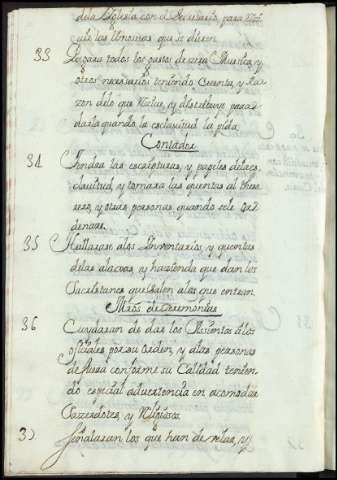 dela Yglesia con el Secretario, para
las limosnas que se dieren
33 Pagara todos los gastos de cera, Musica, y
otros necesarios teniendo Cuenta, y Ra-
zon delo que Reciue, y distribuye para
darla quando la esclauitud la pida.
Contador
34 Tendra las escripturas, y papeles dela es-
clauitud, y tomara las quentas al theso-
rero, y otras personas quando se le or-
denare.
35 Hallarase alos Inventarios, y quentas
delas alaxas, y hazienda que dan los
Sacristanes que salen alos que entran.
Mros de Ceremonias
36 Cuydaran de dar los Asientos alos
ofiçiales por su orden, y alas personas
de fuera conforme su Calidad tenien-
do espeçial aduertençia en acomodar
Sacerdotes, y Religiosos.
37 Señalaran los que han de velar, y